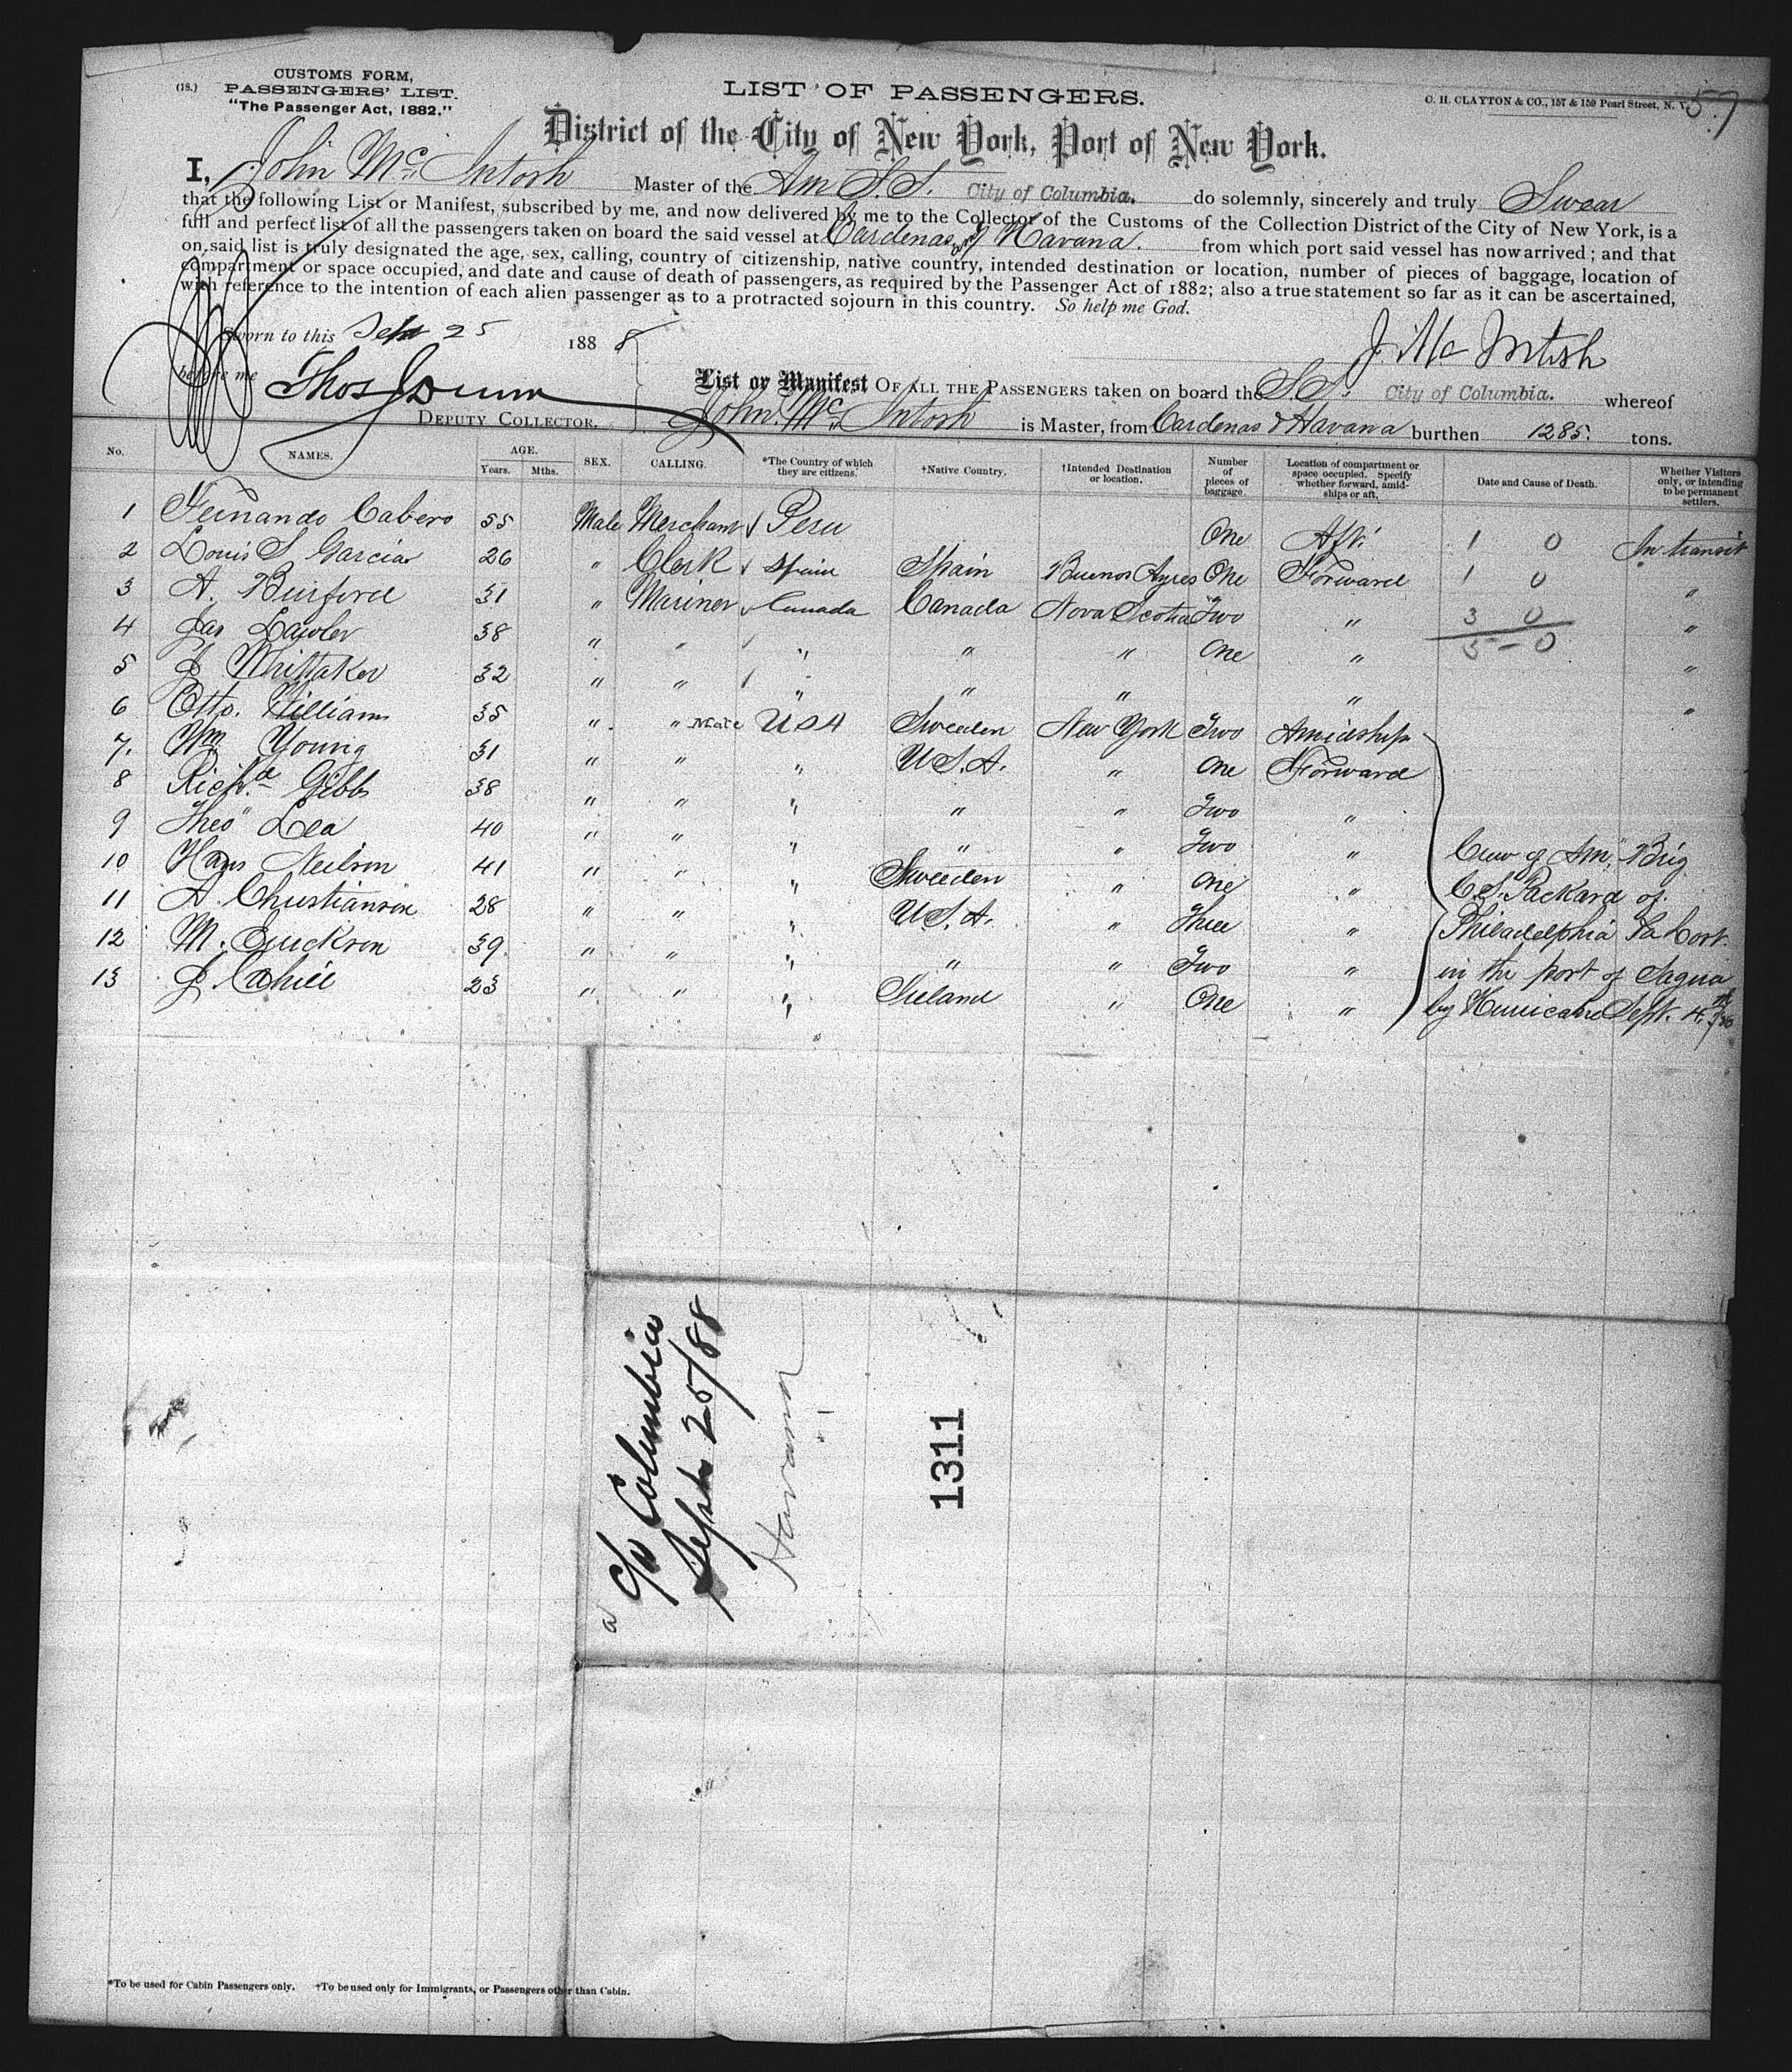 (18.) CUSTOMS FORM,
PASSENGERS' LIST.
"The Passenger Act, 1882."
LIST OF PASSENGERS.
C. H. CLAYTON & CO., 157 & 159 Pearl Street, N. Y.
57
District of the City of New York, Port of New York.
I, John Mc Intosh Master of the Am S.S. City of Columbia. do solemnly, sincerely and truly Swear
that the following List or Manifest, subscribed by me, and now delivered by me to the Collector of the Customs of the Collection District of the City of New York, is a
full and perfect list of all the passengers taken on board the said vessel at Cardenas & Havana. from which port said vessel has now arrived; and that
on said list is truly designated the age, sex, calling, country of citizenship, native country, intended destination or location, number of pieces of baggage, location of
compartment or space occupied, and date and cause of death of passengers, as required by the Passenger Act of 1882; also a true statement so far as it can be ascertained,
with reference to the intention of each alien passenger as to a protracted sojourn in this country. So help me God.
Sworn to this Sept 25 1888
J. Mc Intosh
before me Thos J Dunn
DEPUTY COLLECTOR.
List or Manifest OF ALL THE PASSENGERS taken on board the S.S. City of Columbia. whereof
John Mc Intosh is Master, from Cardenas & Havana burthen 1285. tons.
No. NAMES. AGE. Years. Mths. SEX. CALLING. *The Country of which they are citizens. †Native Country. †Intended Destination or location. Number of pieces of baggage. Location of compartment or space occupied. Specify whether forward, amidships or aft. Date and Cause of Death. Whether Visitors only, or intending to be permanent settlers.
1 Fernando Cabero 55 Male Merchant Peru One Aft. 1 0 In transit
2 Louis S Garcia 26 " Clerk Spain Spain Buenos Ayres One Forward 1 0 "
3 A. 31 " Mariner Canada Canada Nova Scotia Two " 3 0 "
4 Jas Lawler 38 " " " " " One " 5 - 0 "
5 J Whittaker 32 " " " " " " "
6 Otto. Williams 35 " " Mate USA Sweeden New York Two Amidship
7. Wm Young 31 " " " U.S.A. " One Forward
8 Richd. Gibbs 38 " " " " " Two "
9 Theo" Lea 40 " " " " " Two "
10 Hans Neilson 41 " " " Sweeden " One "
11 A. Christianson 28 " " " U.S.A. " Three "
12 M. Erickson 39. " " " " " Two "
13 J. Cahill 23 " " " Ireland " One "
Crew of Am. Brig
C.S. Packard of.
Philadelphia Pa Lost
in the port of Sagua
by Hurricane Sept. 4th
c/o Columbia
Sept 25/88
Havana
1311
*To be used for Cabin Passengers only. †To be used only for Immigrants, or Passengers other than Cabin.